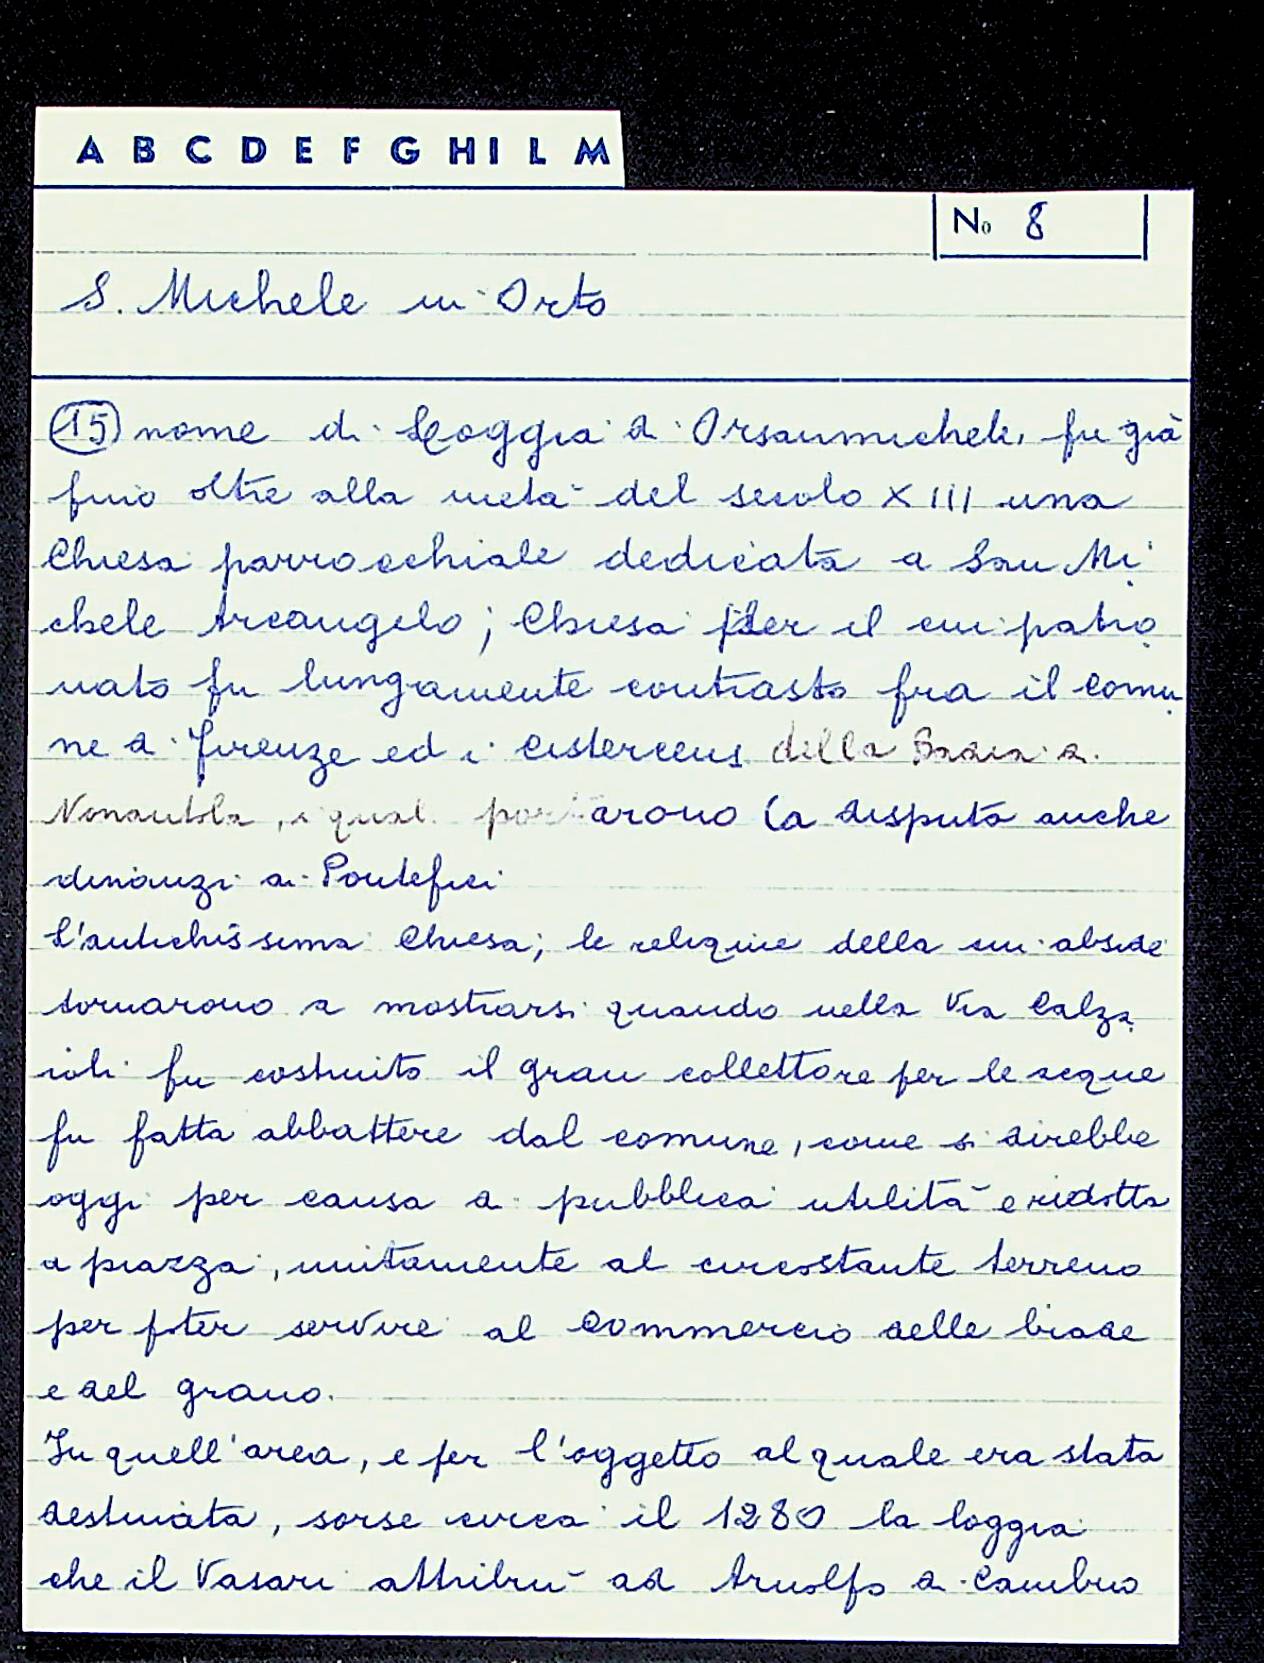 A B C D E F G H I L M
No 8
S. Michele in Orto
(15) nome di Loggia di Orsanmichele, fu già
fino oltre alla metà del secolo XIII una
Chiesa parrocchiale dedicata a San Mi
chele Arcangelo; Chiesa per il cui patro
nato fu lungamente contrasto fra il comu
ne di Firenze ed i Cistercensi della Badia di
Nonantola, i quali portarono la disputa anche
dinanzi ai Pontefici
L'antichissima Chiesa; le reliquie della cui abside
tornarono a mostrarsi quando nella Via Calza
ioli fu costruito il gran collettore per le acque
fu fatta abbattere dal comune, come si direbbe
oggi per causa di pubblica utilità e ridotta
a piazza, unitamente al circostante terreno
per poter servire al Commercio delle biade
e del grano.
In quell'area, e per l'oggetto al quale era stata
destinata, sorse circa il 1280 la loggia
che il Vasari attribuì ad Arnolfo di Cambio